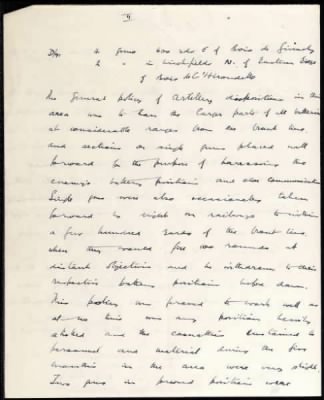 4 guns 600 yds E of Bois de
2 " in N. of Eastern Edge
of Bois de l'Hirondelle
The General policy of Artillery dispositions in this
area was to have the larger part of all batteries
at considerable ranges from the front line
and sections or single guns placed well
forward for the purpose of harassing the
enemy's battery positions and also communications
Single guns were also occasionally taken
forward by night on railways to within
a few hundred yards of the front line
when they would fire rounds at
distant objectives and be withdrawn to their
respective battery positions before dawn.
This policy proved to work well as
at no time was any position heavily
shelled and the casualties sustained to
personnel and material during the five
months in the area were very slight
Two guns in forward positions were